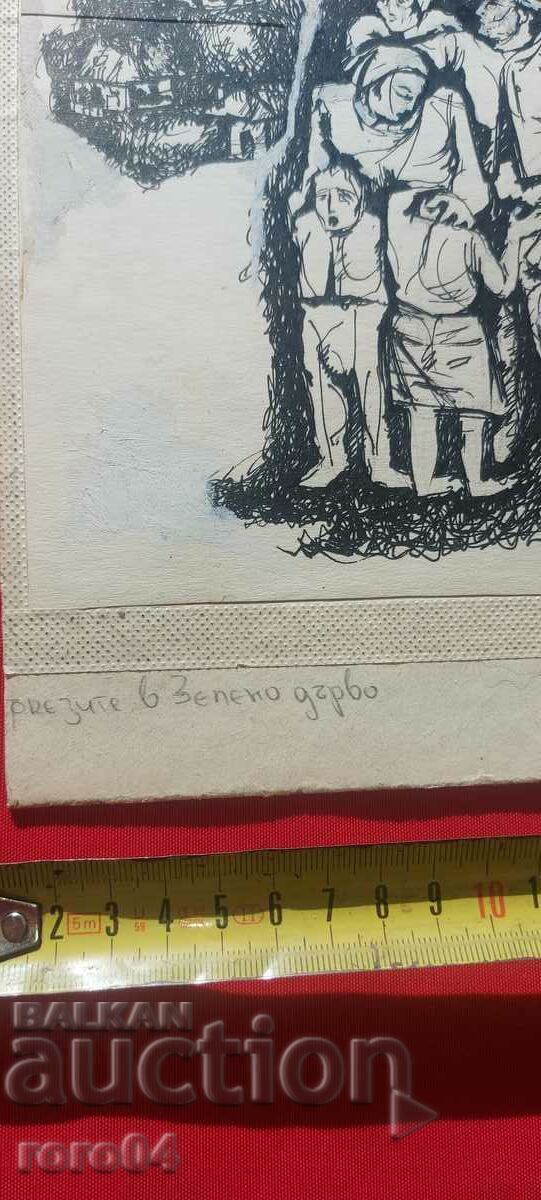 в Зелено дърво
2 5m 3 4 5 6 7 8 9 10 1
BALKAN
auction
roro04